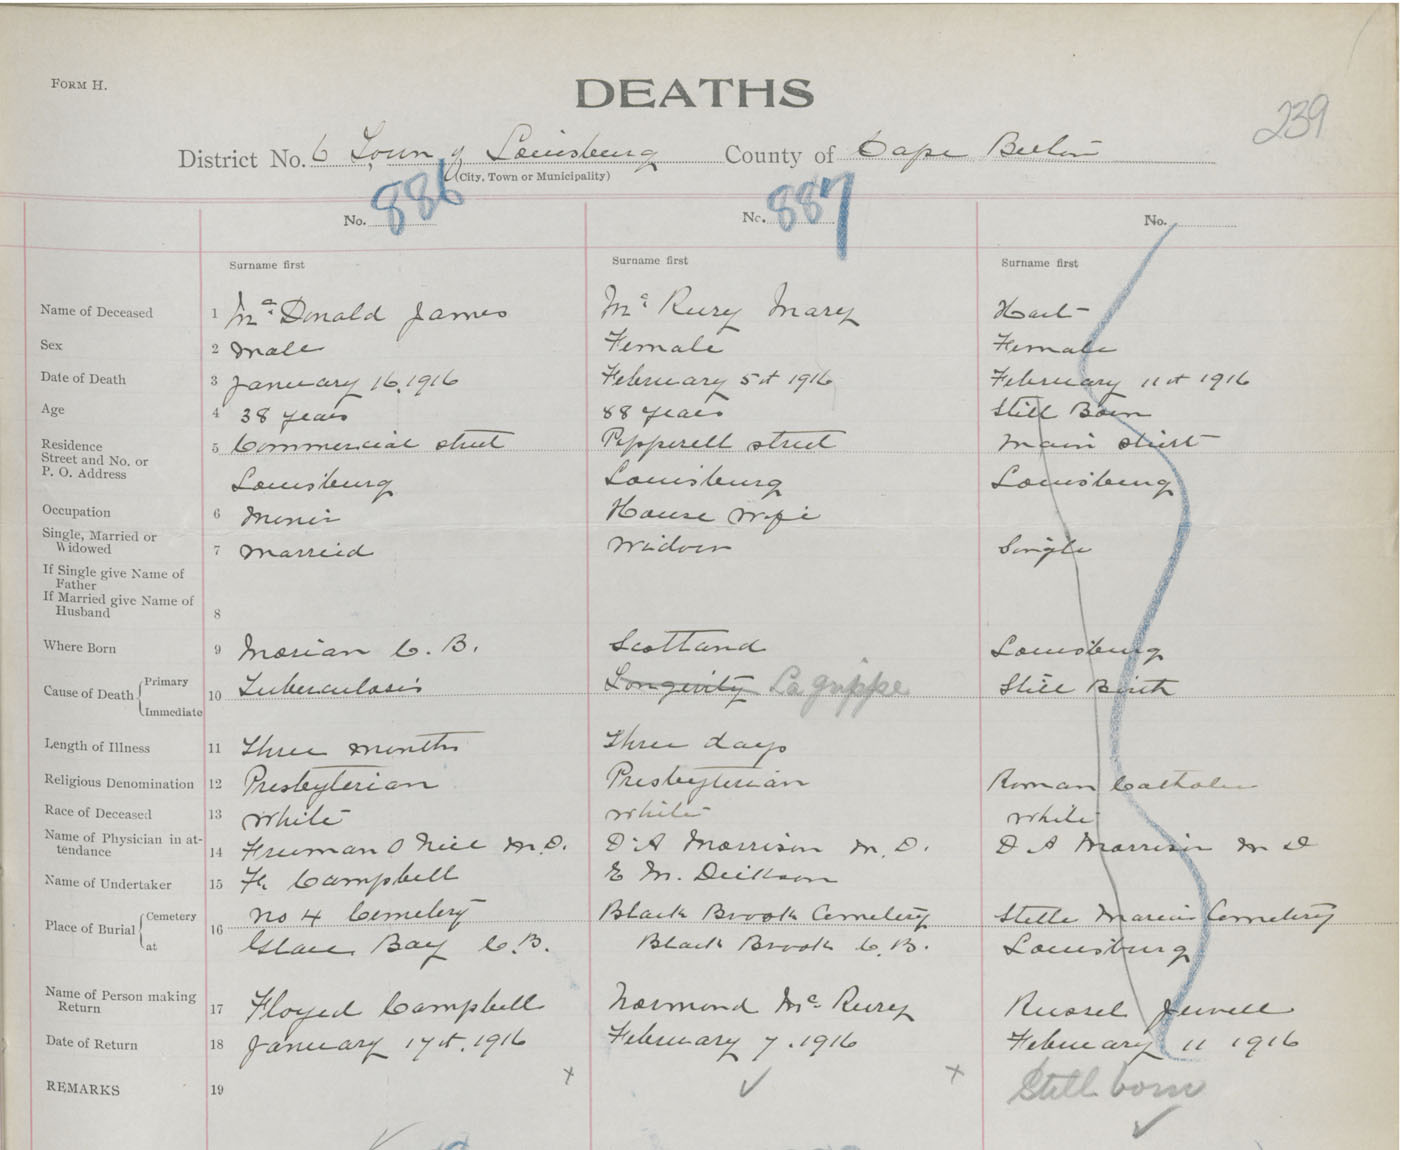 FORM H.
DEATHS
239
District No. 6 Town of Louisburg County of Cape Breton
(City, Town or Municipality)
No. 886 No. 887 No.
Surname first Surname first Surname first
Name of Deceased 1 McDonald James Mc Rury Mary Hart
Sex 2 male Female Female
Date of Death 3 January 16, 1916 February 5th 1916 February 11th 1916
Age 4 38 years 88 years Still Born
Residence
Street and No. or 5 Commercial street Pepperell street main street
P. O. Address Louisburg Louisburg Louisburg
Occupation 6 House Wife
Single, Married or
Widowed 7 married Widow Single
If Single give Name of
Father
If Married give Name of
Husband 8
Where Born 9 C. B. Scotland Louisburg
Primary
Cause of Death 10 Tuberculosis Longevity La grippe Still Birth
Immediate
Length of Illness 11 three months three days
Religious Denomination 12 Presbyterian Presbyterian Roman Catholic
Race of Deceased 13 White White White
Name of Physician in at-
tendance 14 Freeman O Neil M.D. D. A Morrison M. D. D A Morrison M D
Name of Undertaker 15 Campbell E M. Dickson
Cemetery no 4 Cemetery Black Brook Cemetery Stella Maris Cemetery
Place of Burial 16
at Glace Bay C.B. Black Brook C. B. Louisburg
Name of Person making
Return 17 Floyed Campbell Normond Mc Rury Russel Jewell
Date of Return 18 January 17th, 1916 February 7. 1916 February 11 1916
REMARKS 19 Still born